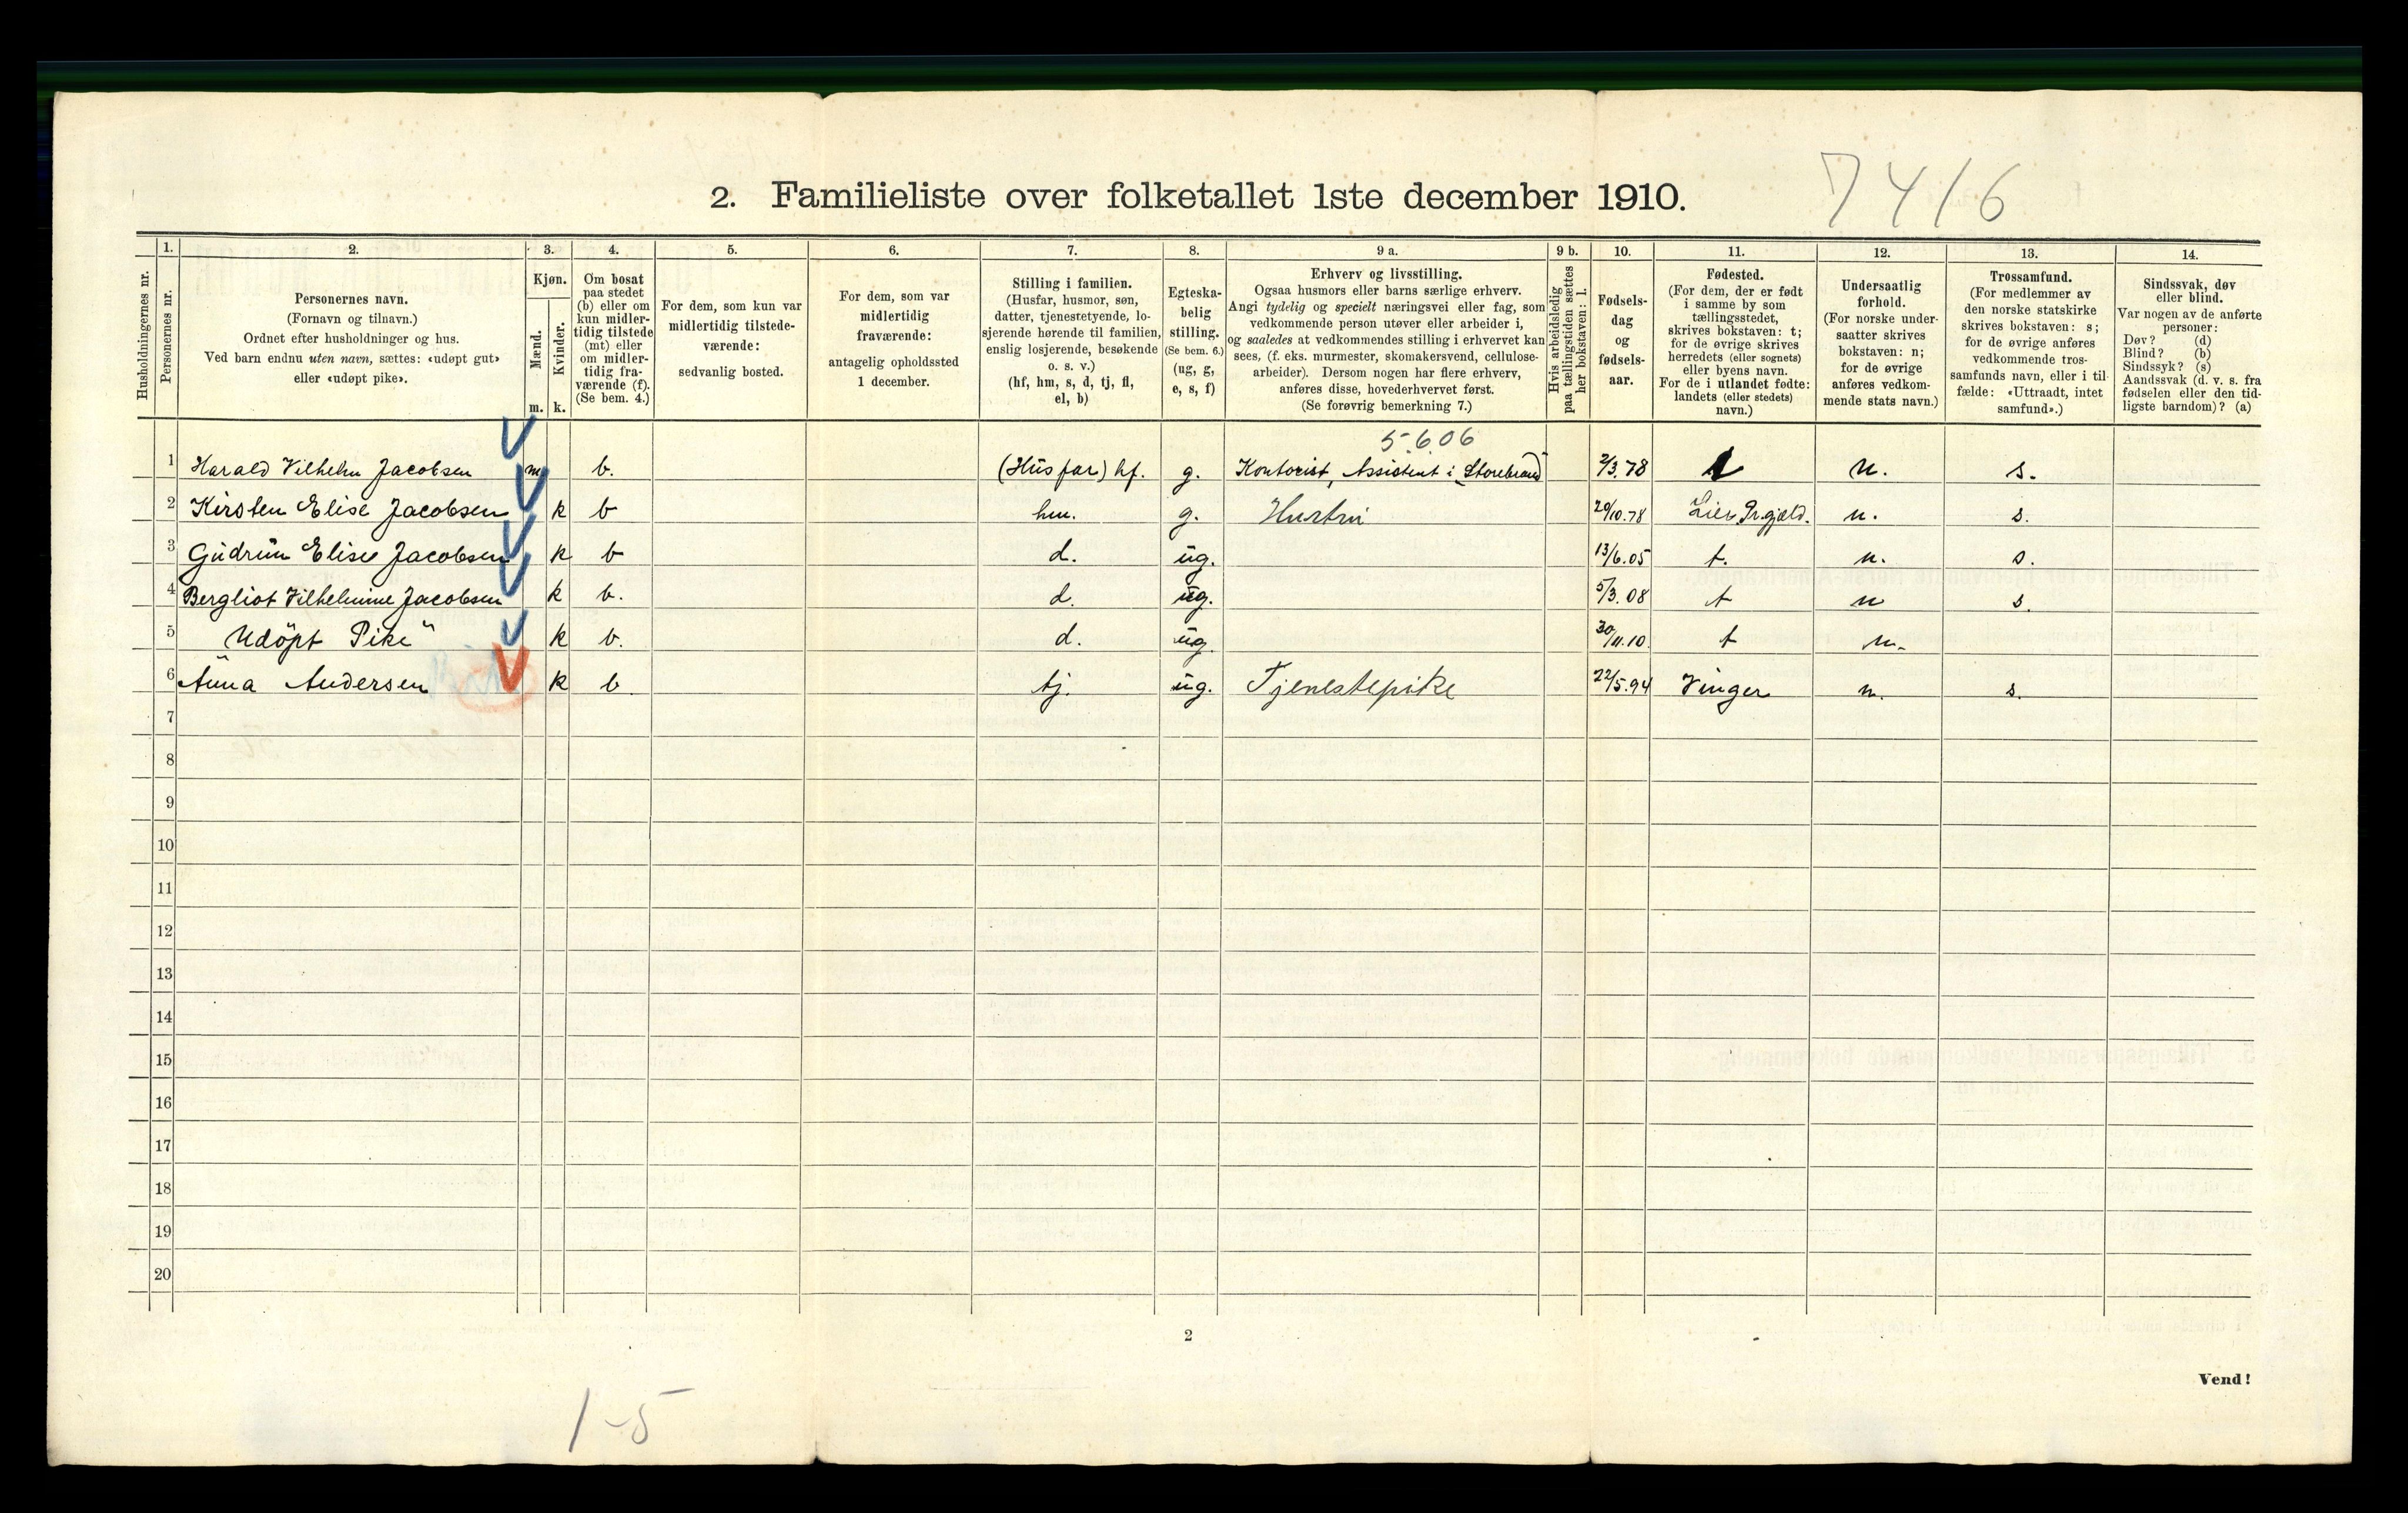 7416
2. Familieliste over folketallet 1ste december 1910.
1. 2. 3. 4. 5. 6. 7. 8. 9 a. 9 b. 10. 11. 12. 13. 14.
Husholdningernes nr.
Personernes nr.
Personernes navn.
(Fornavn og tilnavn.)
Ordnet efter husholdninger og hus.
Ved barn endnu uten navn, sættes: «udøpt gut»
eller «udøpt pike».
Kjøn.
Mænd.
Kvinder.
m. k.
Om bosat
paa stedet
(b) eller om
kun midler-
tidig tilstede
(mt) eller
om midler-
tidig fra-
værende (f).
(Se bem. 4.)
For dem, som kun var
midlertidig tilstede-
værende:
sedvanlig bosted.
For dem, som var
midlertidig
fraværende:
antagelig opholdssted
1 december.
Stilling i familien.
(Husfar, husmor, søn,
datter, tjenestetyende, lo-
sjerende hørende til familien,
enslig losjerende, besøkende
o. s. v.)
(hf, hm, s, d, tj, fl,
el, b)
Egteska-
belig
stilling.
(Se bem. 6.)
(ug, g,
e, s, f)
Erhverv og livsstilling.
Ogsaa husmors eller barns særlige erhverv.
Angi tydelig og specielt næringsvei eller fag, som
vedkommende person utøver eller arbeider i,
og saaledes at vedkommendes stilling i erhvervet kan
sees, (f. eks. murmester, skomakersvend, cellulose-
arbeider). Dersom nogen har flere erhverv,
anføres disse, hovederhvervet først.
(Se forøvrig bemerkning 7.)
Hvis arbeidsledig
paa tællingstiden sættes
her bokstaven: l.
Fødsels-
dag
og
fødsels-
aar.
Fødested.
(For dem, der er født
i samme by som
tællingsstedet,
skrives bokstaven: t;
for de øvrige skrives
herredets (eller sognets)
eller byens navn.
For de i utlandet fødte:
landets (eller stedets)
navn.)
Undersaatlig
forhold.
(For norske under-
saatter skrives
bokstaven: n;
for de øvrige
anføres vedkom-
mende stats navn.)
Trossamfund.
(For medlemmer av
den norske statskirke
skrives bokstaven: s;
for de øvrige anføres
vedkommende tros-
samfunds navn, eller i til-
fælde: «Uttraadt, intet
samfund».)
Sindssvak, døv
eller blind.
Var nogen av de anførte
personer:
Døv? (d)
Blind? (b)
Sindssyk? (s)
Aandssvak (d. v. s. fra
fødselen eller den tid-
ligste barndom)? (a)
5.606
1 Harald Vilhelm Jacobsen m b. (Husfar) hf. g. Kontorist, Assistent i "Storebrand" 2/3.78 t n. s.
2 Kirsten Elise Jacobsen k b hm. g. Hustru 20/10.78 Lier Prgjeld. n. s.
3 Gudrun Elise Jacobsen k b d. ug. 13/6.05 t. n. s.
4 Bergliot Vilhelmine Jacobsen k b. d. ug. 5/3.08 t n s.
5 "Udöpt Pike" k b. d. ug. 30/11.10. t n.
6 Anna Andersen k b. tj. ug. Tjenestepike 22/5.94 Vinger n. s.
7
8
9
10
11
12
13
14
15
16
17
18
19
20
2
Vend!
1-5